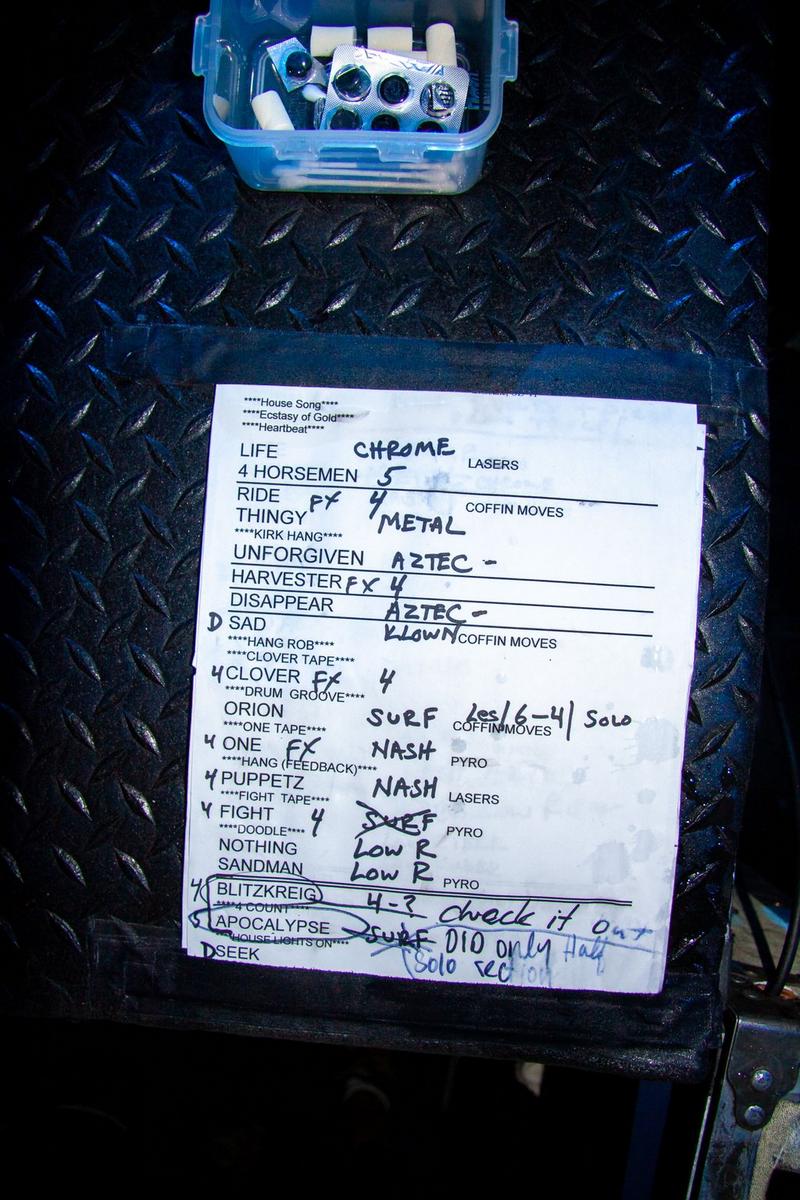 ****House Song****
****Ecstasy of Gold****
****Heartbeat****
LIFE CHROME LASERS
4 HORSEMEN 5
RIDE FX 4 COFFIN MOVES
THINGY METAL
****KIRK HANG****
UNFORGIVEN AZTEC -
HARVESTER FX 4
DISAPPEAR AZTEC -
D SAD KLOWN COFFIN MOVES
****HANG ROB****
****CLOVER TAPE****
4 CLOVER FX 4
****DRUM GROOVE****
ORION SURF Les/6-4/ Solo
****ONE TAPE**** COFFIN MOVES
4 ONE FX NASH PYRO
****HANG (FEEDBACK)****
4 PUPPETZ NASH LASERS
****FIGHT TAPE****
4 FIGHT 4 SURF PYRO
****DOODLE****
NOTHING LOW R
SANDMAN LOW R PYRO
4 BLITZKREIG 4-? check it out
****4 COUNT****
APOCALYPSE SURF DID only Half
****HOUSE LIGHTS ON**** Solo section
D SEEK